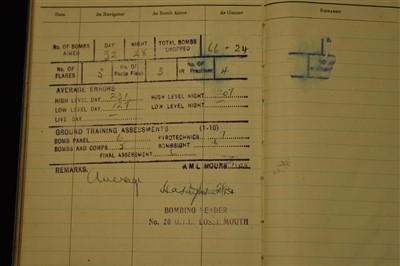 Date As Navigator As Bomb Aimer As Gunner REMARKS
NO. OF BOMBS AIMED DAY 32 NIGHT 28 TOTAL BOMBS DROPPED 66 - 24
NO. OF FLARES 3 NO. OF PHOTO FLASH 3 NO. OF 4
AVERAGE ERRORS
HIGH LEVEL DAY 231 HIGH LEVEL NIGHT
LOW LEVEL DAY 129 LOW LEVEL NIGHT —
LIVE DAY —
GROUND TRAINING ASSESSMENTS (1-10)
BOMB PANEL 6 PYROTECHNICS
BOMBS AND COMPS 5 BOMBSIGHT
FINAL ASSESSMENT
REMARKS. A M L HOURS
Average
BOMBING LEADER
No. 20 O.T.U. LOSSIEMOUTH